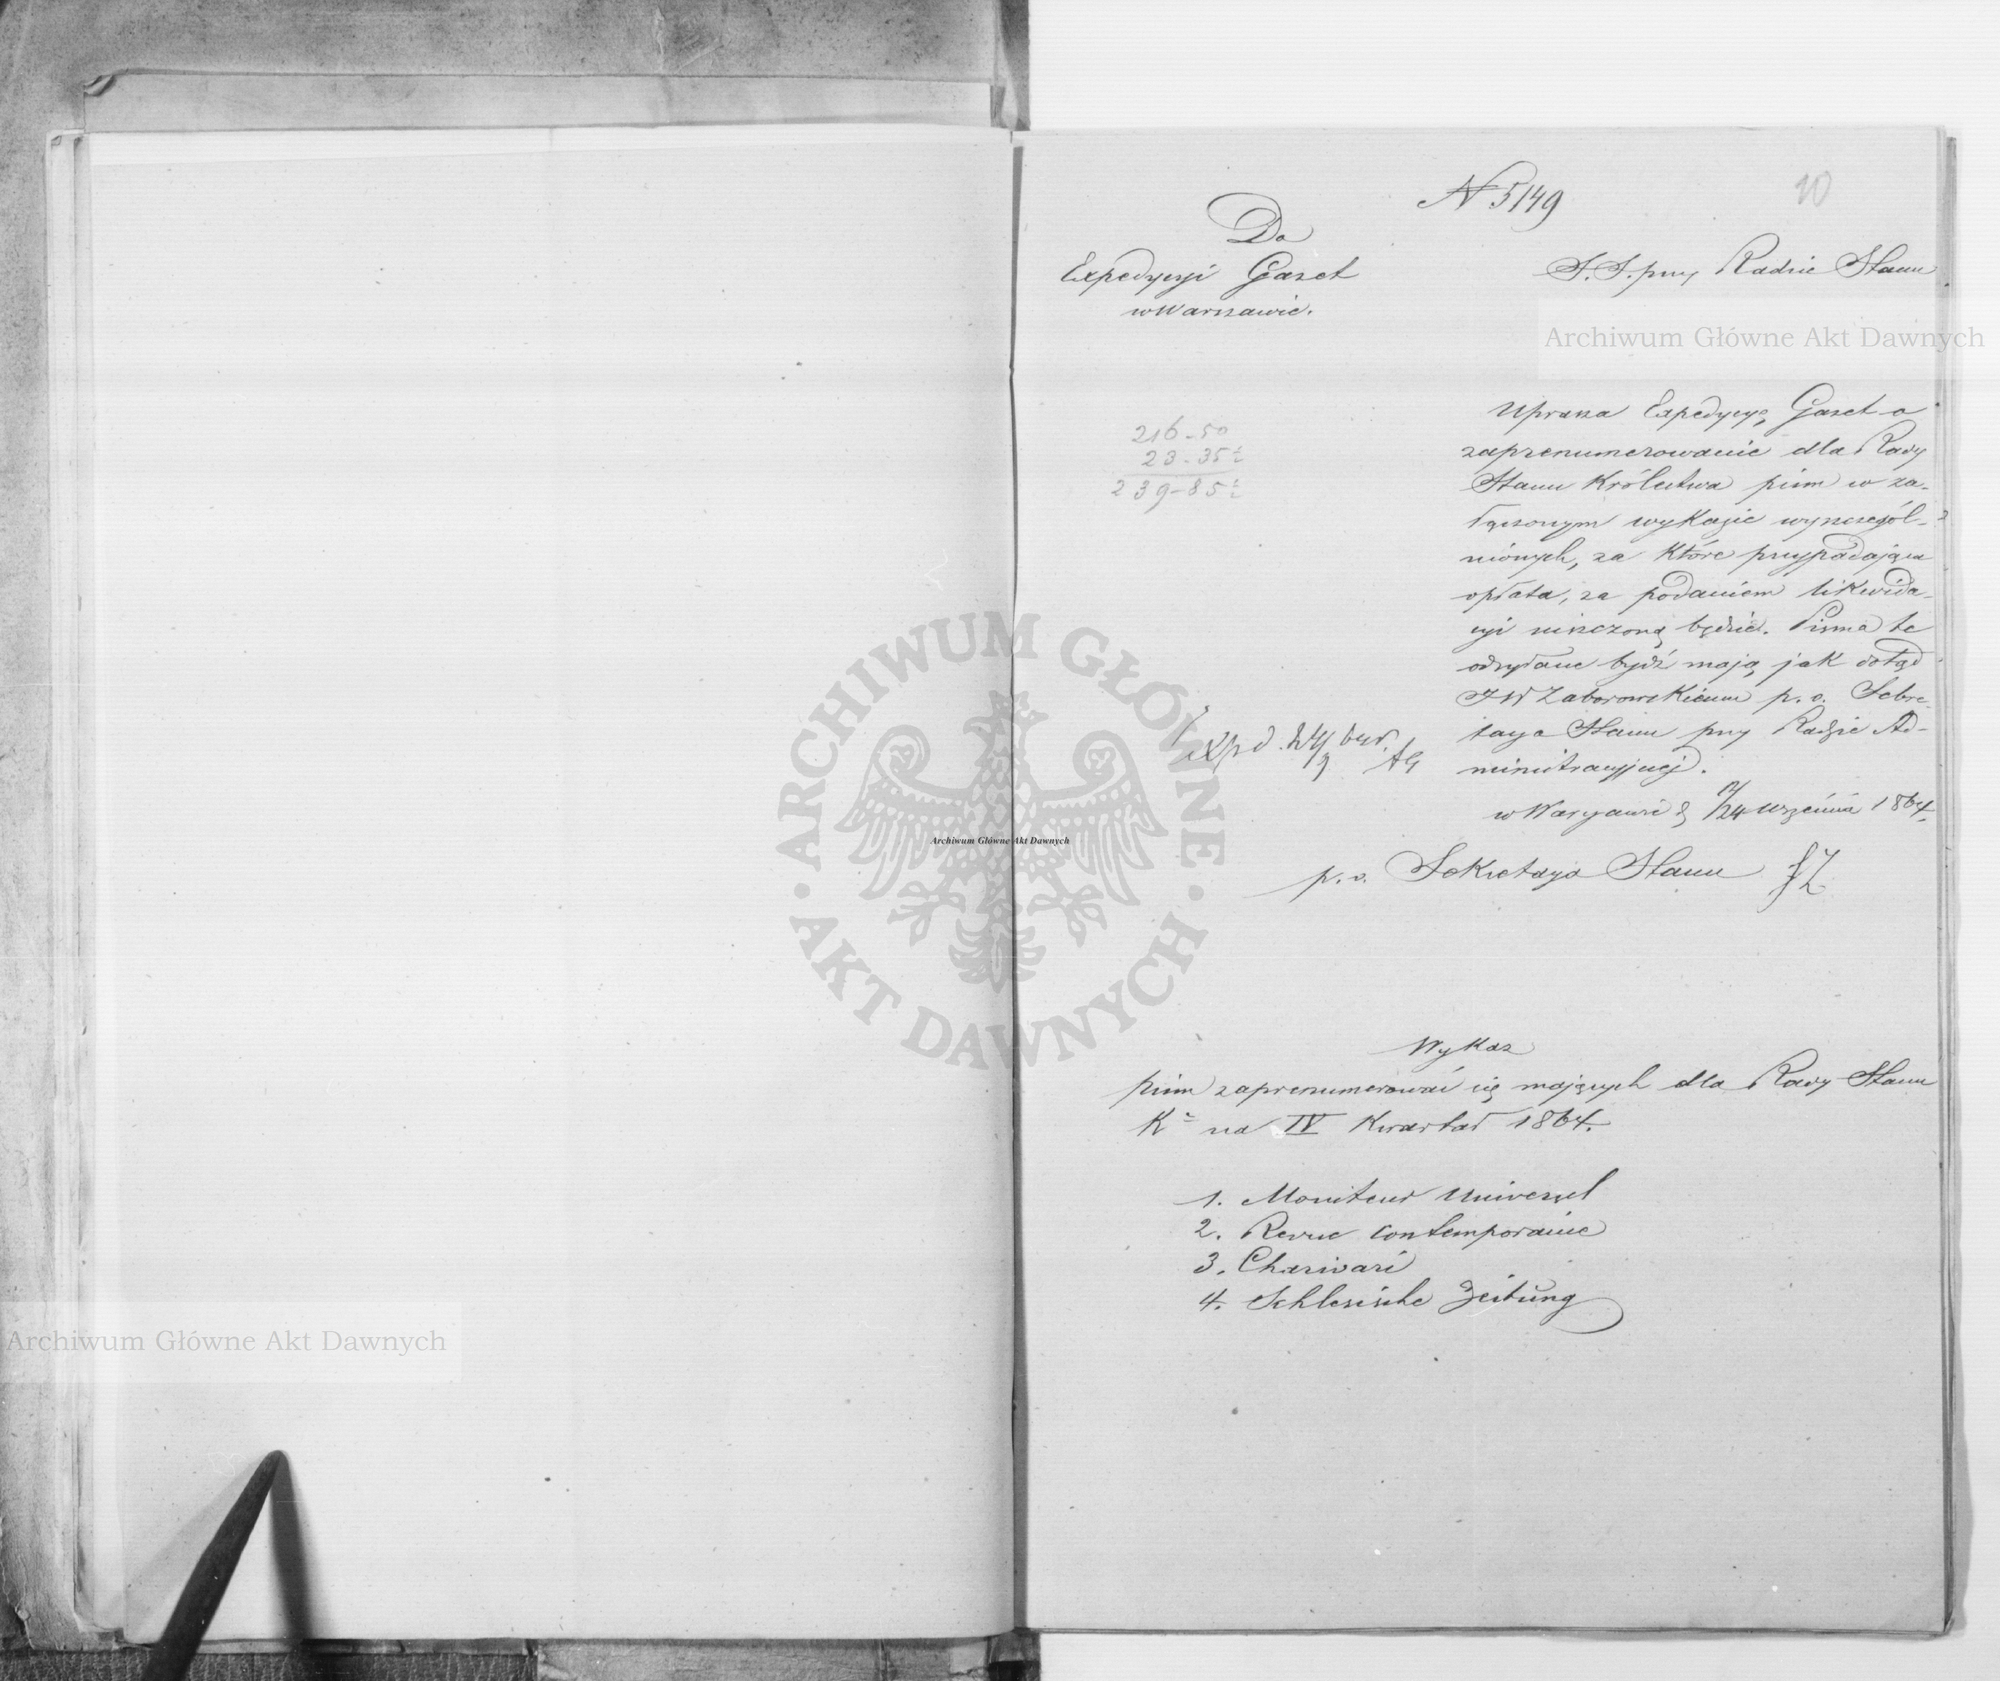 N 5149
10
Do
Expedycyi Gazet
w Warszawie.
S. S. przy Radzie Stanu
Uprasza Expedycyą Gazet o
zaprenumerowanie dla Rady
Stanu Królestwa pism w za-
łączonym wykazie wyszczegól-
nionych, za które przypadająca
opłata, za podaniem likwida-
cyi uiszczoną będzie. Pisma te
odsyłane bydź mają, jak dotąd
JW Zaborowskiemu p. o. Sekre-
tarza Stanu przy Radzie Ad-
ministracyjnej.
w Warszawie d 12/24 Września 1864.
p. o. Sekretarza Stanu
216 - 50
23 - 35
239 - 85
Exped. 24/9
Wykaz
pism zaprenumerować się mających dla Rady Stanu
K na IV Kwartał 1864.
1. Moniteur Universel
2. Revue contemporaine
3. Charivari
4. Schlesische Zeitung
Archiwum Główne Akt Dawnych
ARCHIWUM GŁÓWNE
AKT DAWNYCH
Archiwum Główne Akt Dawnych
Archiwum Główne Akt Dawnych